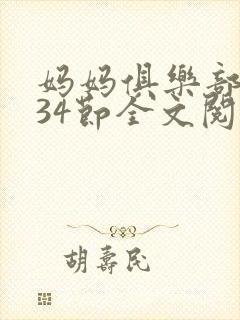 妈妈俱樂部
34節全文閱
胡壽民